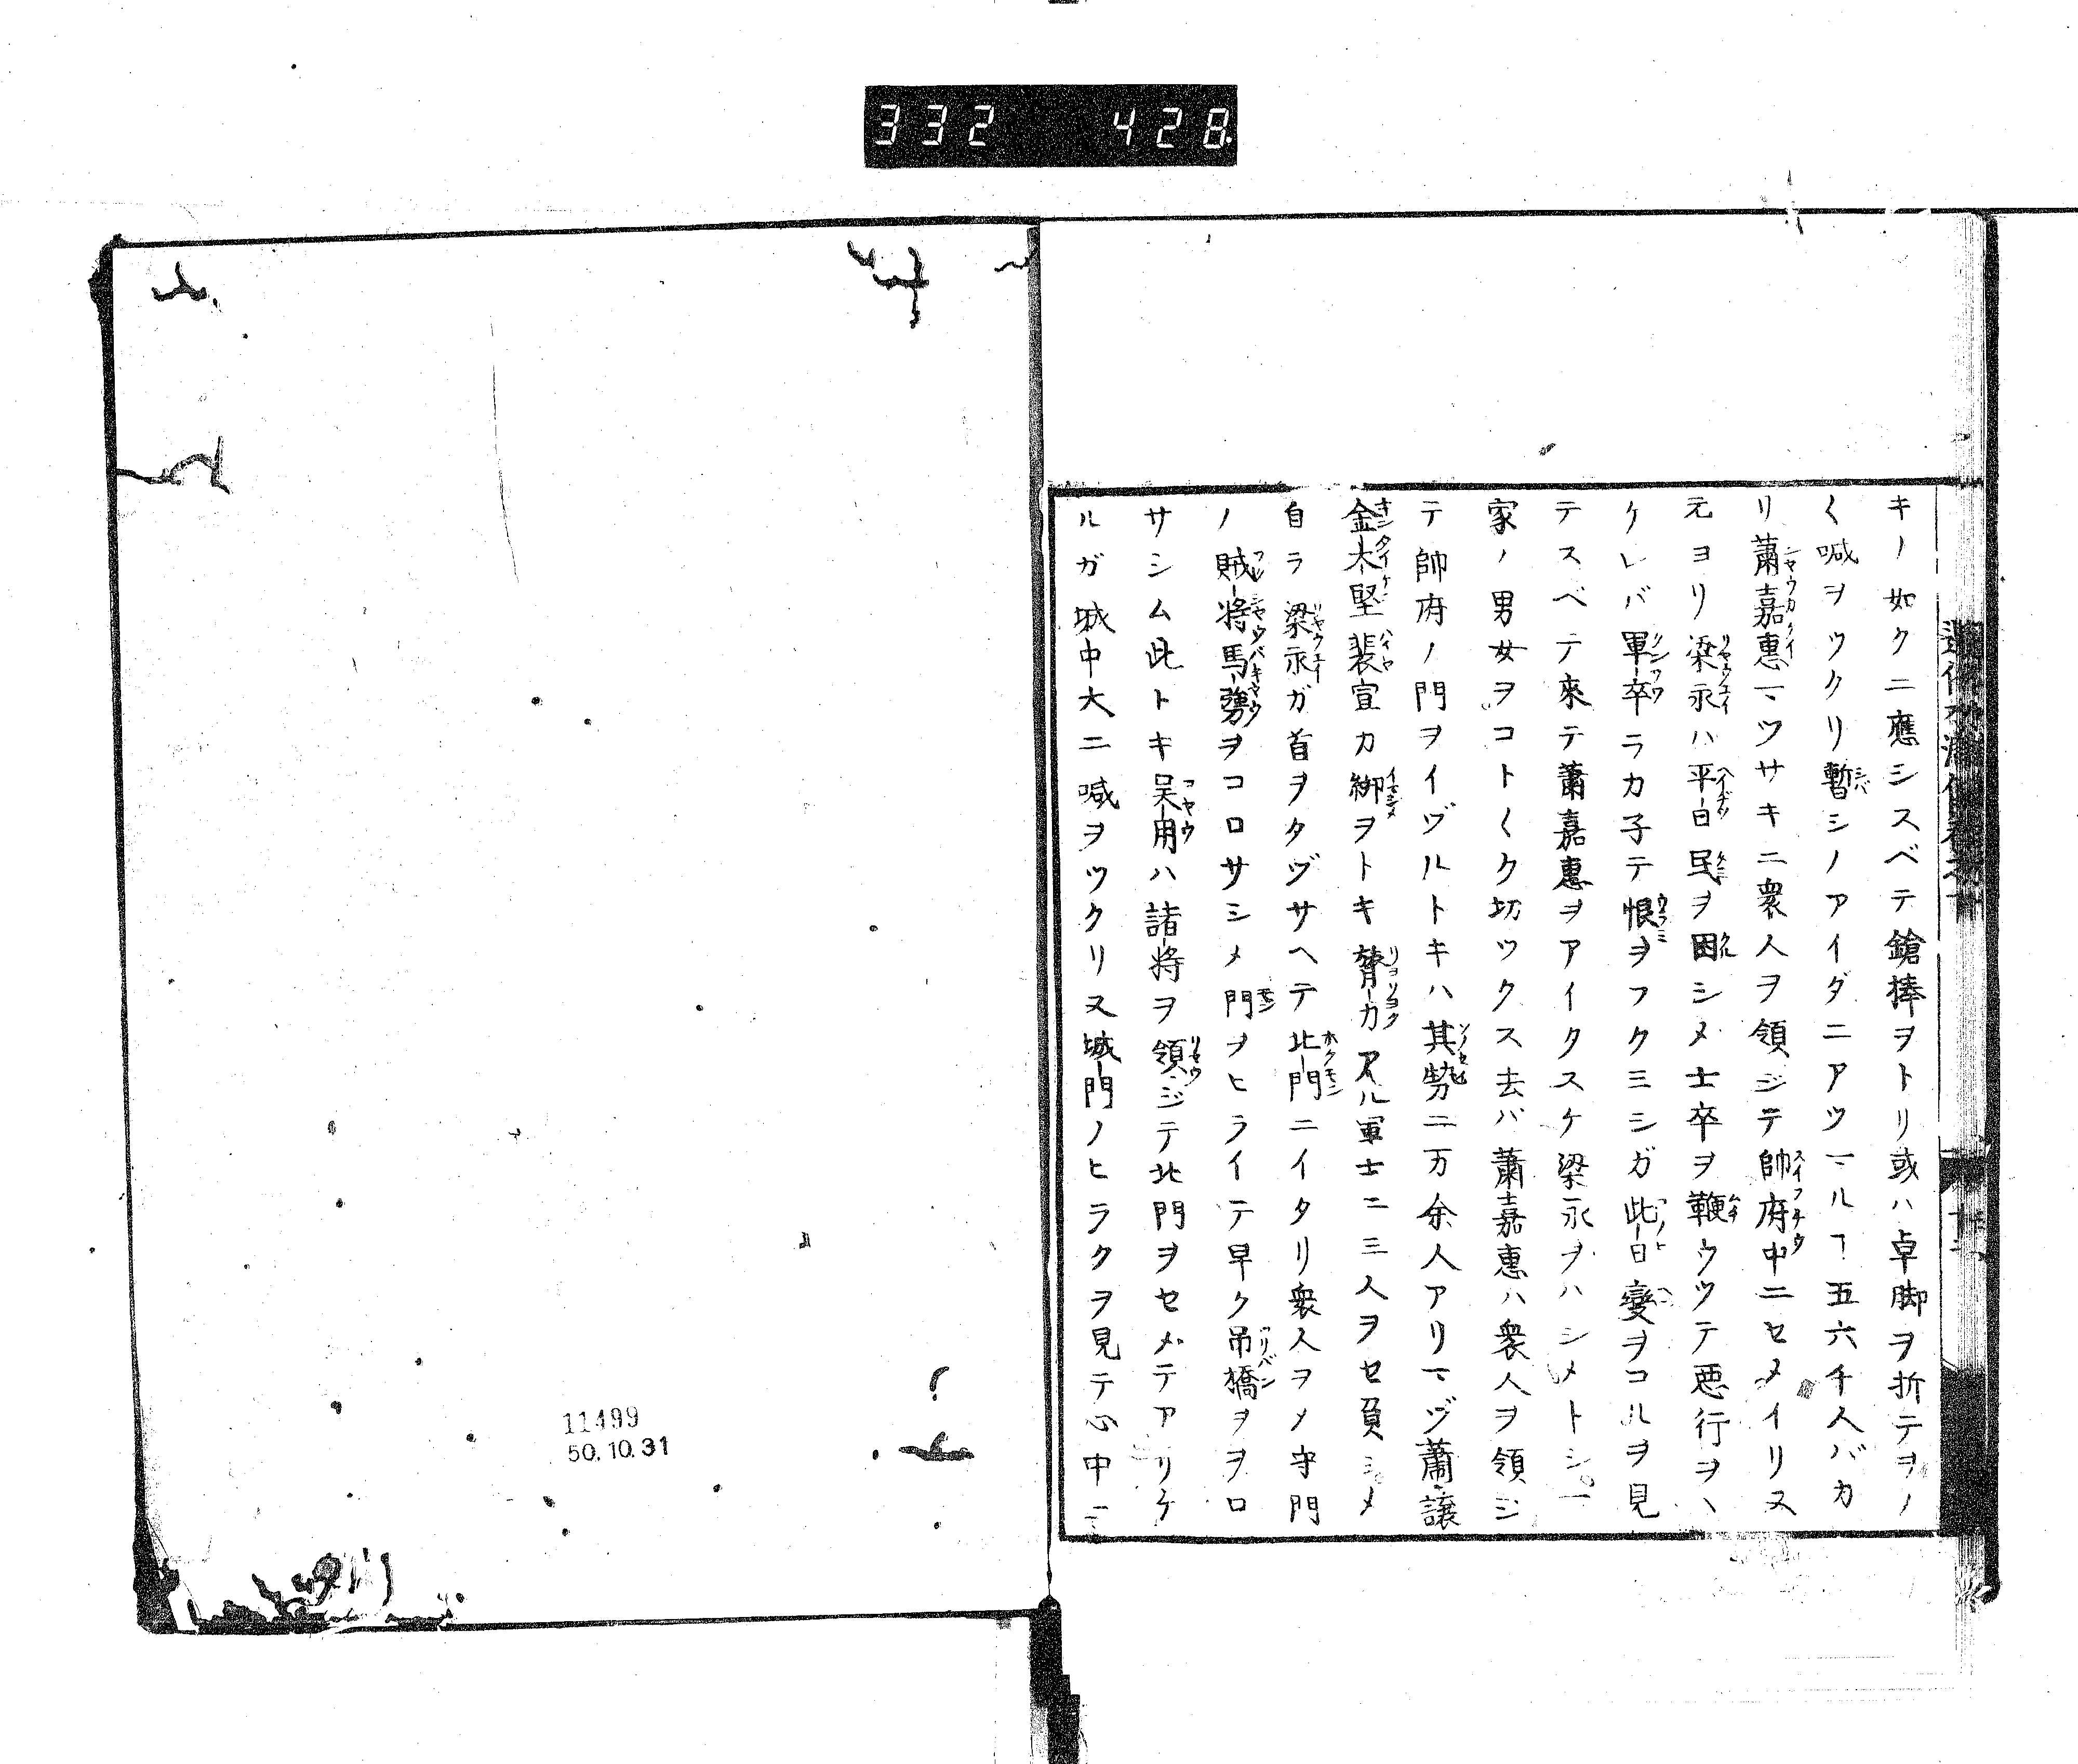 332 428
キノ如クニ應シスベテ鎗棒ヲトリ或ハ卓脚ヲ折テヲノ
〱喊ヲツクリ暫シノアイダニアツマルヿ五六千人バカ
リ蕭嘉惠マツサキニ衆人ヲ領ジテ帥府中ニセメイリヌ
元ヨリ梁永ハ平日民ヲ困シメ士卒ヲ鞭ウツテ悪行ヲハ
ケレバ軍卒ラカ子テ恨ヲフクミシガ此日變ヲコルヲ見
テスベテ來テ蕭嘉惠ヲアイタスケ梁永ヲハシメトシ一
家ノ男女ヲコト〱ク切ツクス去バ蕭嘉惠ハ衆人ヲ領シ
テ帥府ノ門ヲイヅルトキハ其勢二万余人アリマヅ蕭讓
金大堅裴宣カ綁ヲトキ膂力アル軍士二三人ヲセ負シメ
自ラ梁永ガ首ヲタヅサヘテ北門ニイタリ衆人ヲメ守門
ノ賊将馬勥ヲコロサシメ門ヲヒライテ早ク吊橋ヲヲロ
サシム此トキ吴用ハ諸将ヲ領ジテ北門ヲセメテアリケ
ルガ城中大ニ喊ヲツクリヌ城門ノヒラクヲ見テ心中ニ
11499
50.10.31